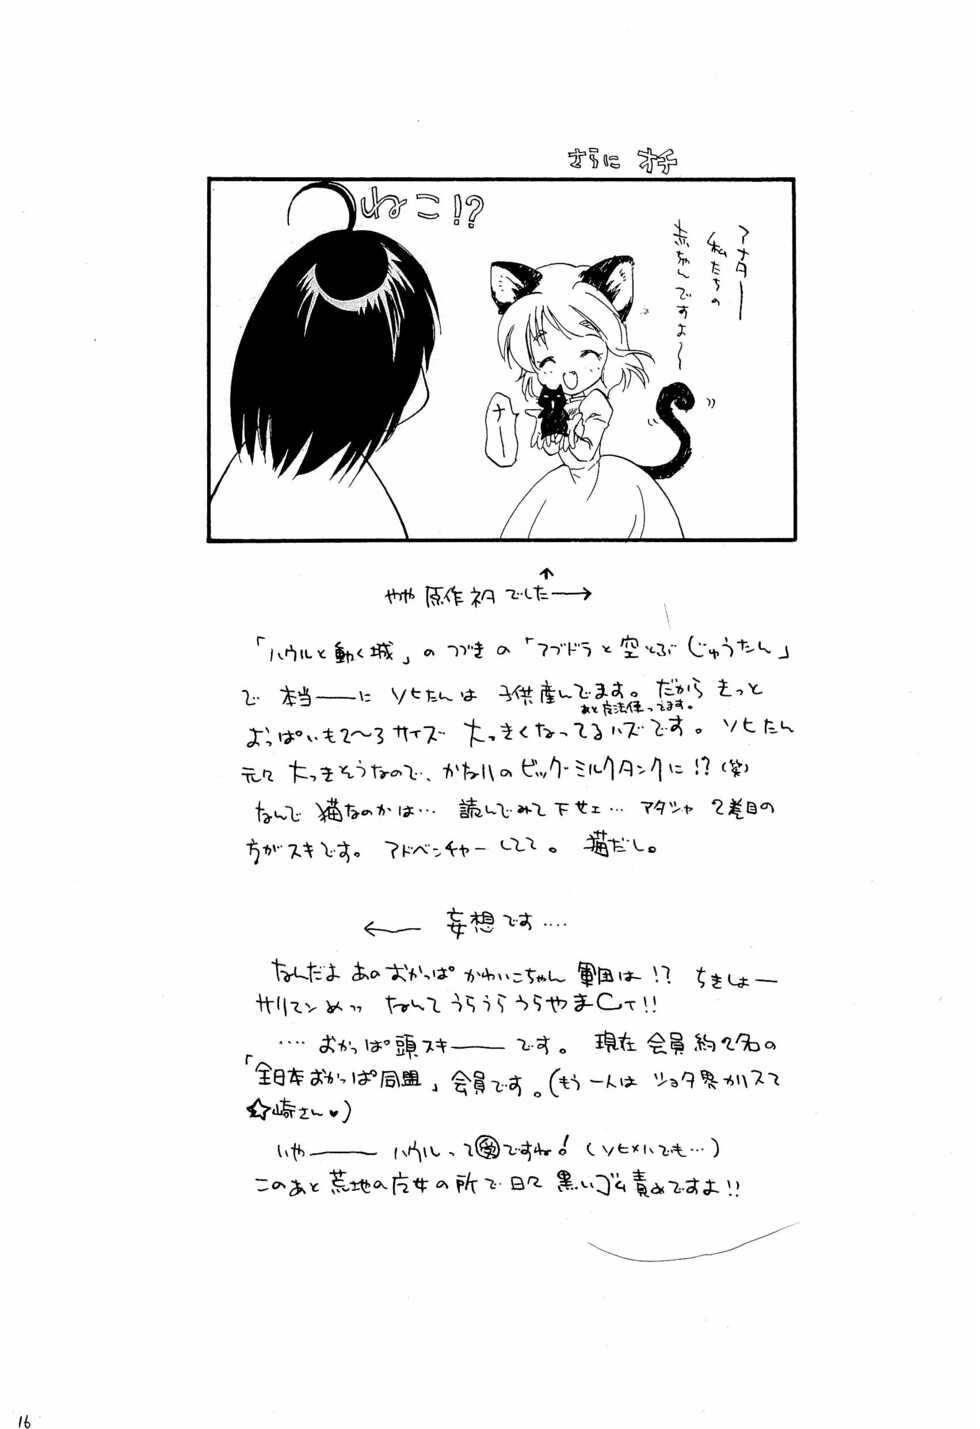 さらに オチ
ねこ!?
アナター
私たちの
赤ちゃんですよ〜
ナー
↑
やや 原作ネタ でした→
「ハウルと動く城」の つづきの「アブドラと空とぶじゅうたん」
で 本当ーーに ソヒたんは 子供産んでます。だから きっと
あと 魔法使ってます。
おっぱいも2〜3サイズ 大っきくなってるハズです。ソヒたん
元々 大っきそうなので、かなりの ビッグ・ミルクタンクに!?(笑)
なんで 猫なのかは… 読んでみて下せェ… アタシャ 2巻目の
方がスキです。アドベンチャーしてて。猫だし。
← 妄想です‥‥
なんだよ あの おかっぱ かわいこちゃん 軍団は!? ちきしょー
サリマンめッッ なんて うらうら うらやまCィ!!
‥‥ おかっぱ頭スキーーーです。 現在 会員 約2名の
「全日本おかっぱ同盟」会員です。(もう一人は ショタ界カリスマ
☆崎さん♥)
いやーーー ハウルって㊝ですね! (ソヒ×ハでも…)
このあと 荒地の魔女の所で 日々 黒いゴム責めですよ!!
16